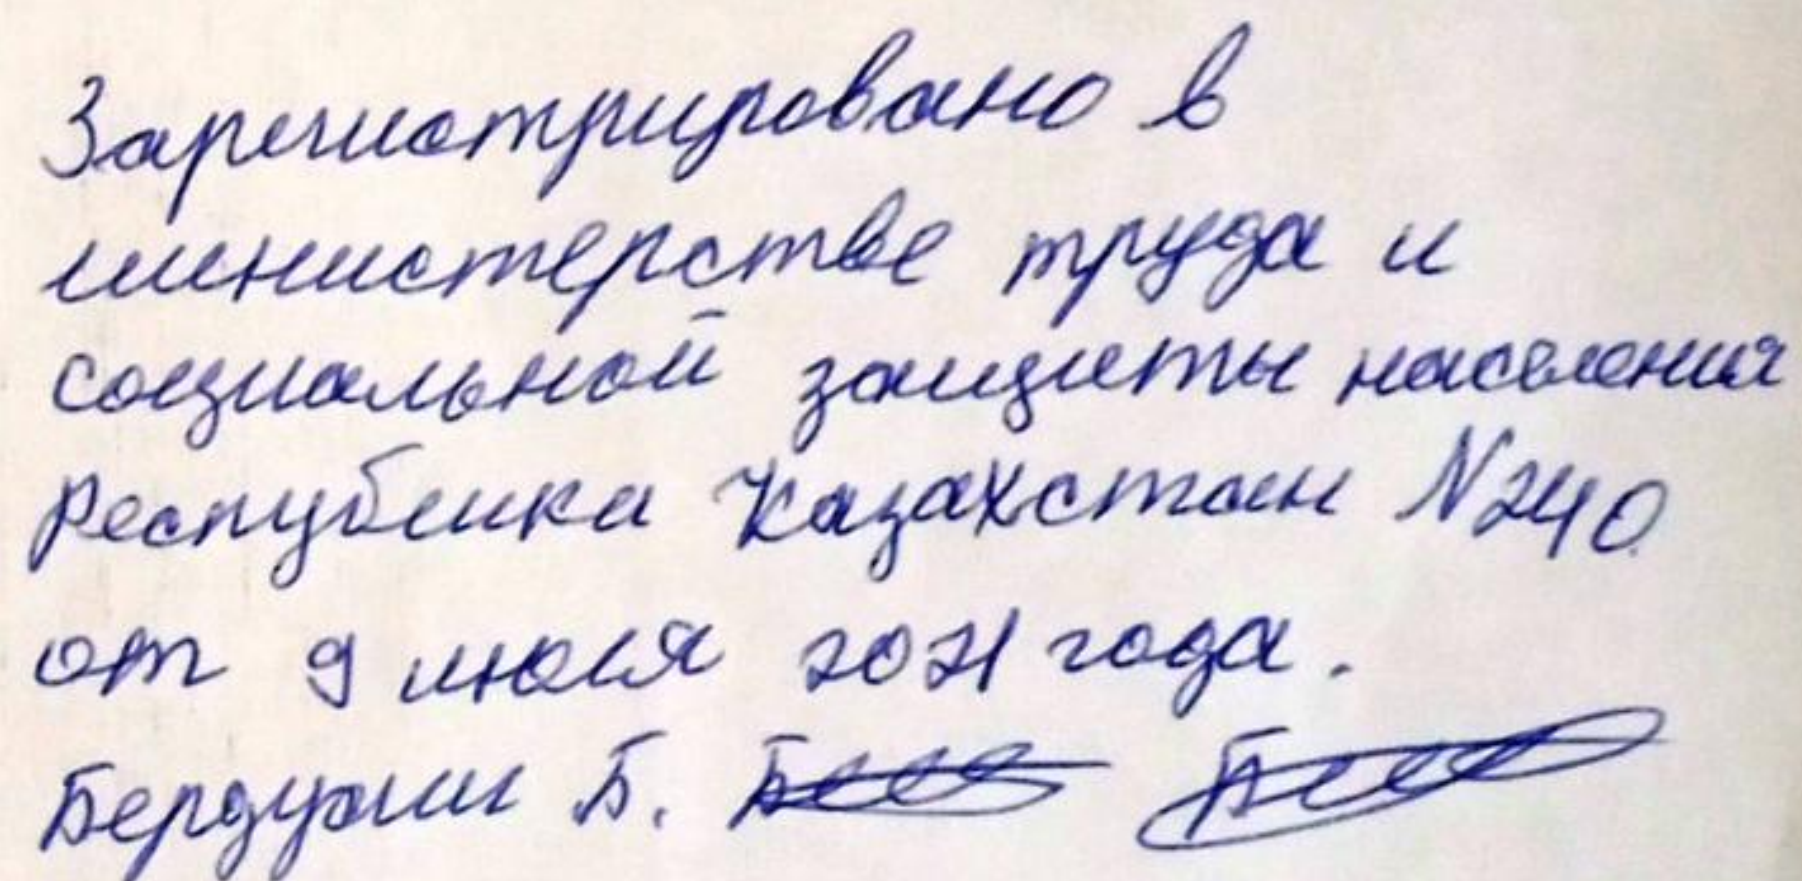 Зарегистрировано в
министерстве труда и
социальной защиты населения
Республика Казахстан N240
от 9 июля 2021 года.
Б.